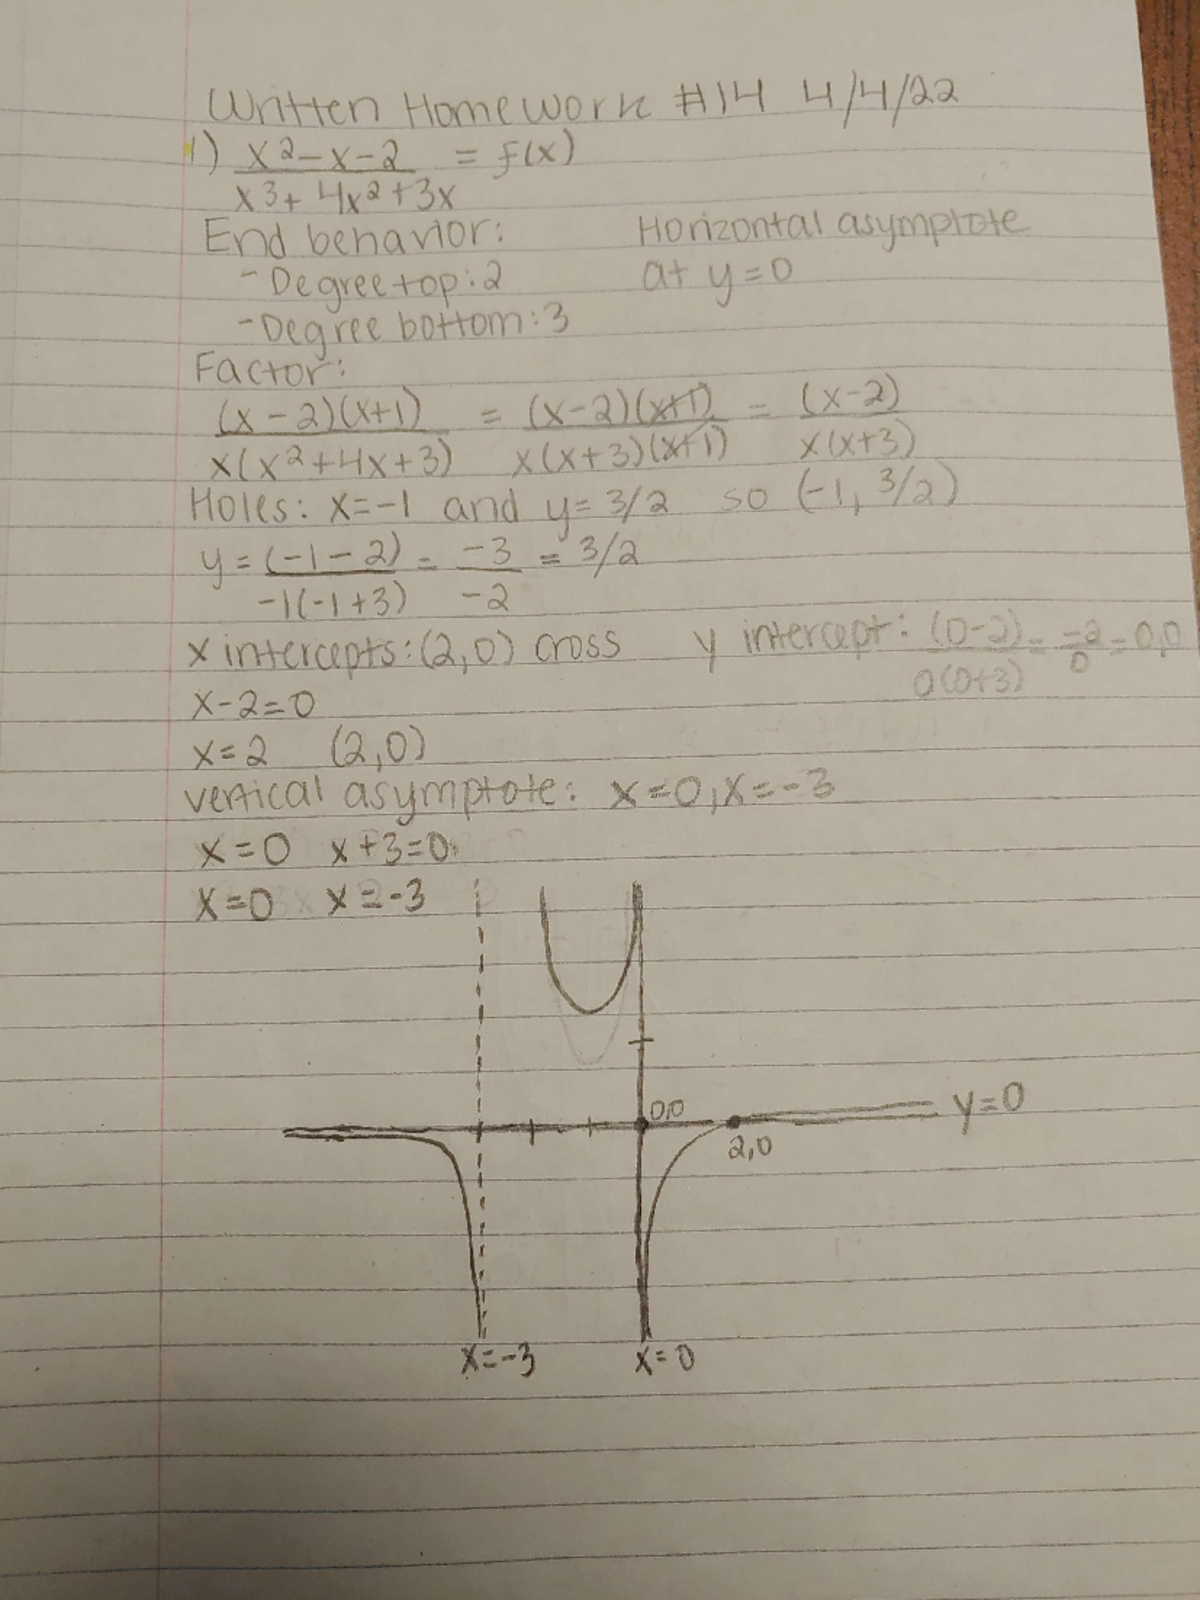 Written Homework #14 4/4/22
1) x^2-x-2 / x^3+4x^2+3x = f(x)
End behavior: Horizontal asymptote
-Degree top: 2 at y=0
-Degree bottom: 3
Factor:
(x-2)(x+1) / x(x^2+4x+3) = (x-2)(x+1) / x(x+3)(x+1) = (x-2) / x(x+3)
Holes: x=-1 and y=3/2 so (-1, 3/2)
y = (-1-2) / -1(-1+3) = -3 / -2 = 3/2
x intercepts: (2,0) cross y intercept: (0-2) / 0(0+3) = -2 / 0 = 0,0
x-2=0
x=2 (2,0)
vertical asymptote: x=0, x=-3
x=0 x+3=0
x=0 x=-3
0,0
y=0
2,0
x=-3 x=0